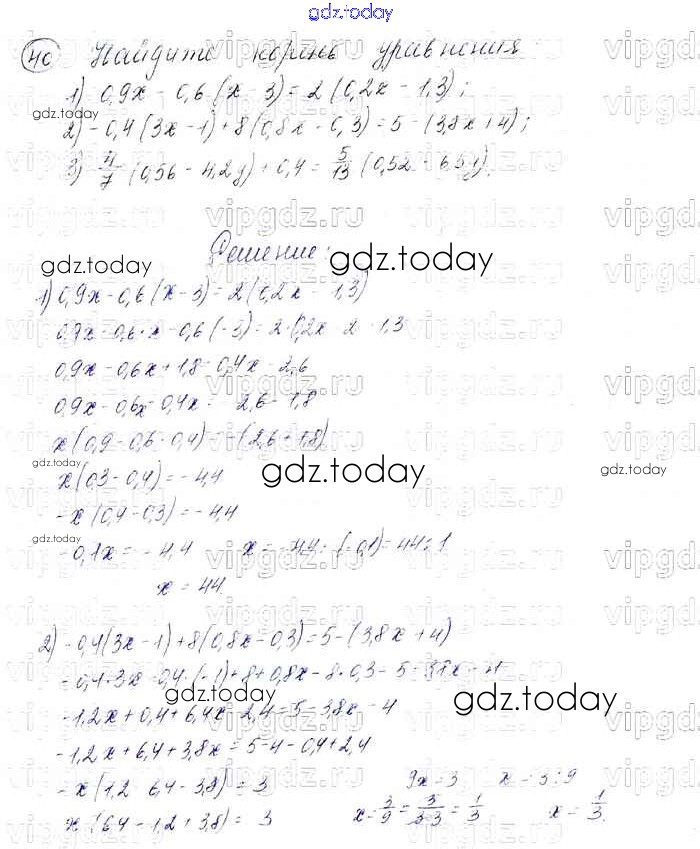 gdz.today
40 Найдите корень уравнения:
1) 0,9x - 0,6(x - 3) = 2(0,2x - 1,3);
gdz.today
2) -0,4(3x - 1) + 8(0,8x - 0,3) = 5 - (3,8x + 4);
3) 4/7 (0,56 - 4,2y) + 0,4 = 5/13 (0,52 - 6,5y).
vipgdz.ru
Решение:
gdz.today gdz.today
1) 0,9x - 0,6(x - 3) = 2(0,2x - 1,3)
0,9x - 0,6·x - 0,6(-3) = 2·0,2x - 2·1,3
0,9x - 0,6x + 1,8 = 0,4x - 2,6
0,9x - 0,6x - 0,4x = -2,6 - 1,8
x(0,9 - 0,6 - 0,4) = -(2,6 + 1,8)
gdz.today gdz.today gdz.today
x(0,3 - 0,4) = -4,4
-x(0,4 - 0,3) = -4,4
gdz.today
-0,1x = -4,4 x = -4,4 : (-0,1) = 44 : 1
x = 44.
2) -0,4(3x - 1) + 8(0,8x - 0,3) = 5 - (3,8x + 4)
-0,4·3x - 0,4·(-1) + 8·0,8x - 8·0,3 = 5 - 3,8x - 4
gdz.today gdz.today
-1,2x + 0,4 + 6,4x - 2,4 = 5 - 3,8x - 4
-1,2x + 6,4 + 3,8x = 5 - 4 - 0,4 + 2,4
-x(1,2 - 6,4 - 3,8) = 3 9x = 3 x = 3 : 9
x(6,4 - 1,2 + 3,8) = 3 x = 3/9 = 3/3·3 = 1/3 x = 1/3.